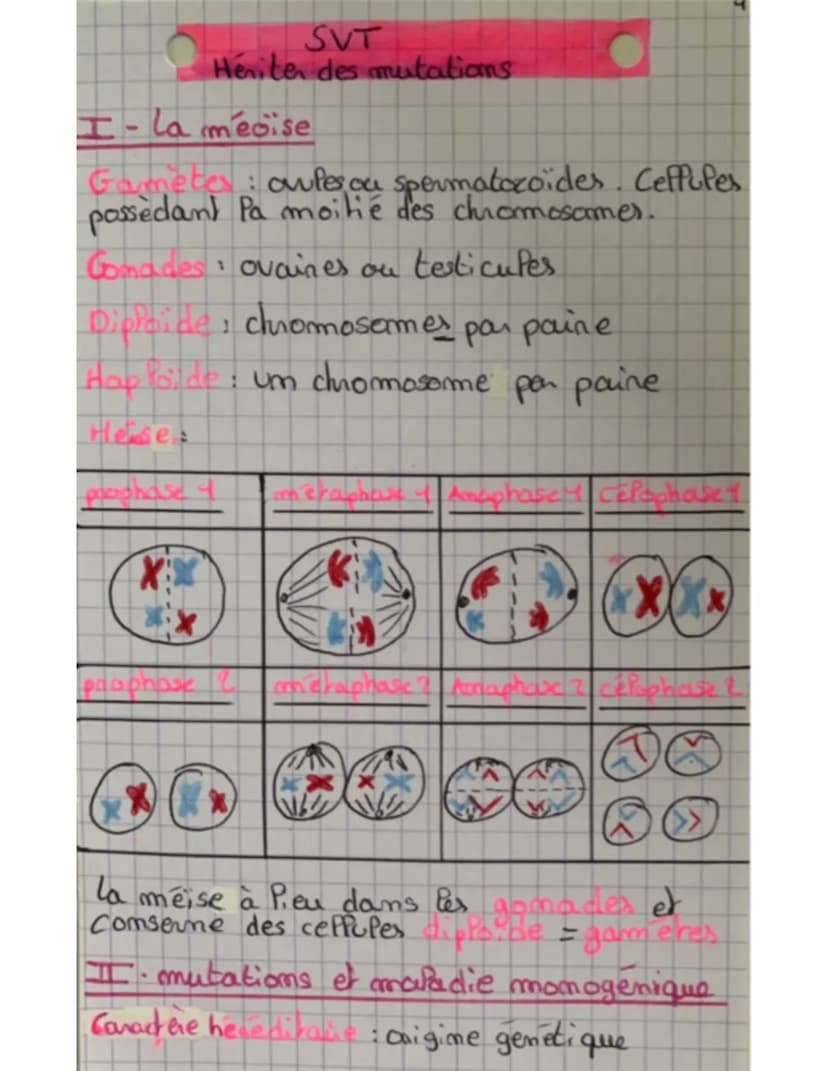 SVT
Hériter des mutations
I - La méoïse
Gamètes : ovules ou spermatozoïdes. Cellules
possèdant la moitié des chromosomes.
Gonades : ovaires ou testicules
Diploïde : chromosomes par paire
Haploïde : un chromosome per paire
Méïse :
prophase 1 métaphase 1 Anaphase 1 télophase 1
prophase 2 métaphase 2 Anaphase 2 télophase 2
La méïse à lieu dans les gonades et
conserne des cellules diploïde = gamètes
II - mutations et maladie monogénique
Caractère héréditaire : origine génétique